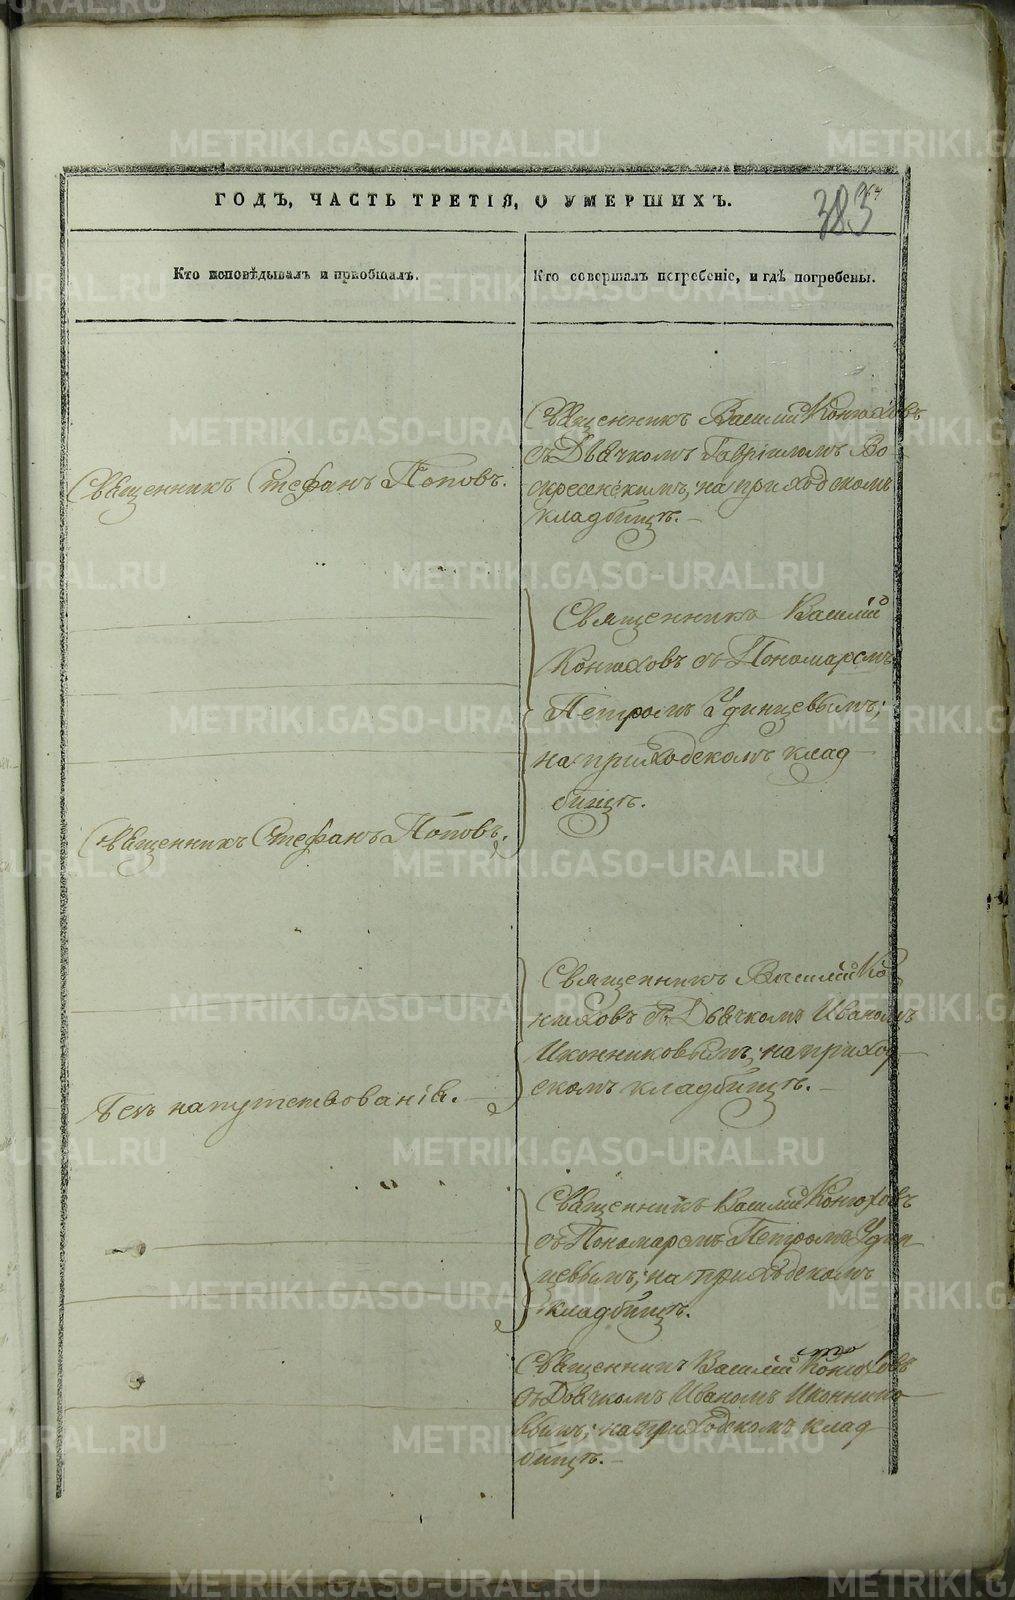 ГОДЪ, ЧАСТЬ ТРЕТІЯ, О УМЕРШИХЪ.
383
Кто исповѣдывалъ и пріобщалъ.
Кто совершалъ погребеніе, и гдѣ погребены.
Священникъ Василій Конюховъ
съ Дьячкомъ Гавріиломъ Во-
скресенскимъ, на приходскомъ
кладбищѣ.
Священникъ Стефанъ Поповъ.
Священникъ Василій
Конюховъ съ Пономаремъ
Петромъ Удинцевымъ;
на приходскомъ клад
бищѣ.
Священникъ Стефанъ Поповъ.
Священникъ Василій Ко
нюховъ съ Дьячкомъ Иваномъ
Иконниковымъ; на приход
скомъ кладбищѣ.
Безъ напутствованія.
Священникъ Василій Конюховъ
съ Пономаремъ Петромъ Удин
цевымъ; на приходскомъ
кладбищѣ.
Священникъ Василій Конюховъ
съ Дьячкомъ Иваномъ Иконнико
вымъ; на приходскомъ клад
бищѣ.
METRIKI.GASO-URAL.RU